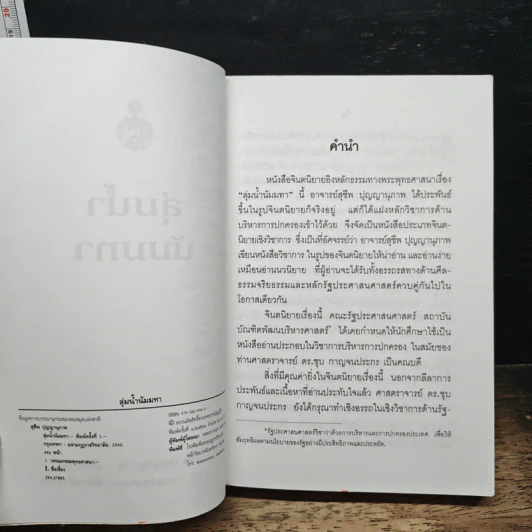 ลุ่มน้ำนัมมทา
ข้อมูลทางบรรณานุกรมของหอสมุดแห่งชาติ
สุชีพ ปุญญานุภาพ
ลุ่มน้ำนัมมทา.-- พิมพ์ครั้งที่
กรุงเทพฯ : มหามกุฏราชวิทยาลัย, 2542.
หน้า
1. วรรณกรรมพุทธศาสนา
I. ชื่อเรื่อง
294.31881
ISBN
คำนำ
หนังสือจินตนิยายอิงหลักธรรมทางพระพุทธศาสนาเรื่อง
“ลุ่มน้ำนัมมทา” นี้ อาจารย์สุชีพ ปุญญานุภาพ ได้ประพันธ์
ขึ้นในรูปจินตนิยายก็จริงอยู่ แต่ก็ได้แฝงหลักวิชาการด้าน
บริหารการปกครองเข้าไว้ด้วย จึงจัดเป็นหนังสือประเภทจินต-
นิยายเชิงวิชาการ ซึ่งเป็นที่อัศจรรย์ว่า อาจารย์สุชีพ ปุญญานุภาพ
เขียนหนังสือวิชาการ ในรูปของจินตนิยายให้น่าอ่าน และอ่านง่าย
เหมือนอ่านนวนิยาย ที่ผู้อ่านจะได้รับทั้งอรรถรสทางด้านศีล-
ธรรมจริยธรรมและหลักรัฐประศาสนศาสตร์ควบคู่กันไปใน
โอกาสเดียวกัน
จินตนิยายเรื่องนี้ คณะรัฐประศาสนศาสตร์ สถาบัน
บัณฑิตพัฒนบริหารศาสตร์* ได้เคยกำหนดให้นักศึกษาใช้เป็น
หนังสืออ่านประกอบในวิชาการบริหารการปกครอง ในสมัยของ
ท่านศาสตราจารย์ ดร.ชุบ กาญจนประกร เป็นคณบดี
สิ่งที่มีคุณค่ายิ่งในจินตนิยายเรื่องนี้ นอกจากลีลาการ
ประพันธ์และเนื้อหาที่อ่านประทับใจแล้ว ศาสตราจารย์ ดร.ชุบ
กาญจนประกร ยังได้กรุณาทำเชิงอรรถในเชิงวิชาการด้านรัฐ-
*รัฐประศาสนศาสตร์วิชาว่าด้วยการบริหารและการปกครองประเทศ เพื่อให้
สัมฤทธิผลตามนโยบายของรัฐอย่างมีประสิทธิภาพและประหยัด.